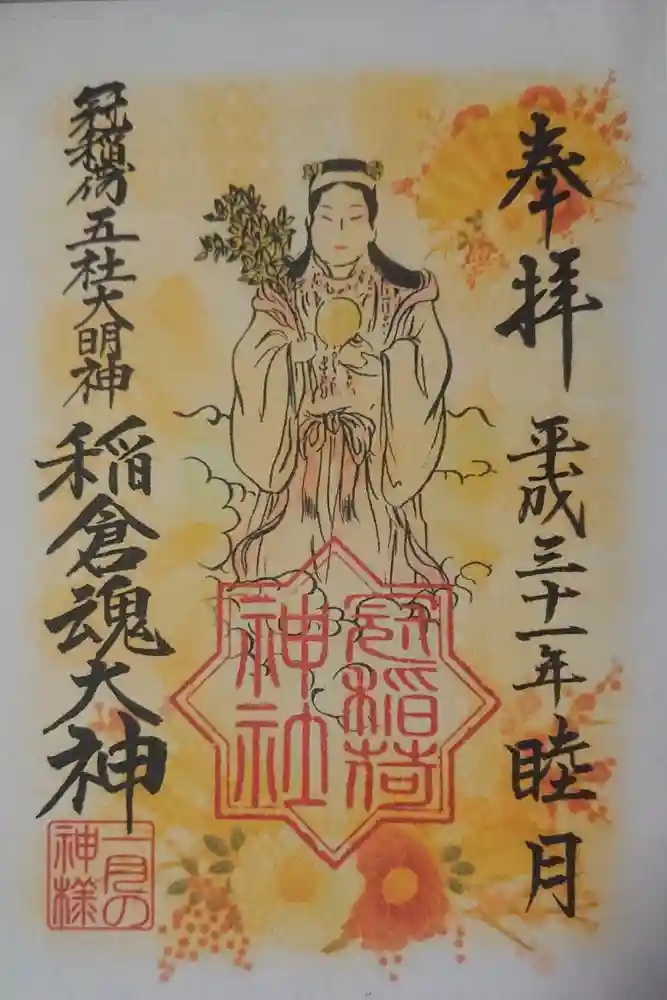 奉拝
平成三十一年
睦月
冠稲荷
神社
冠稲荷五社大明神
稲倉魂大神
一月の
神様